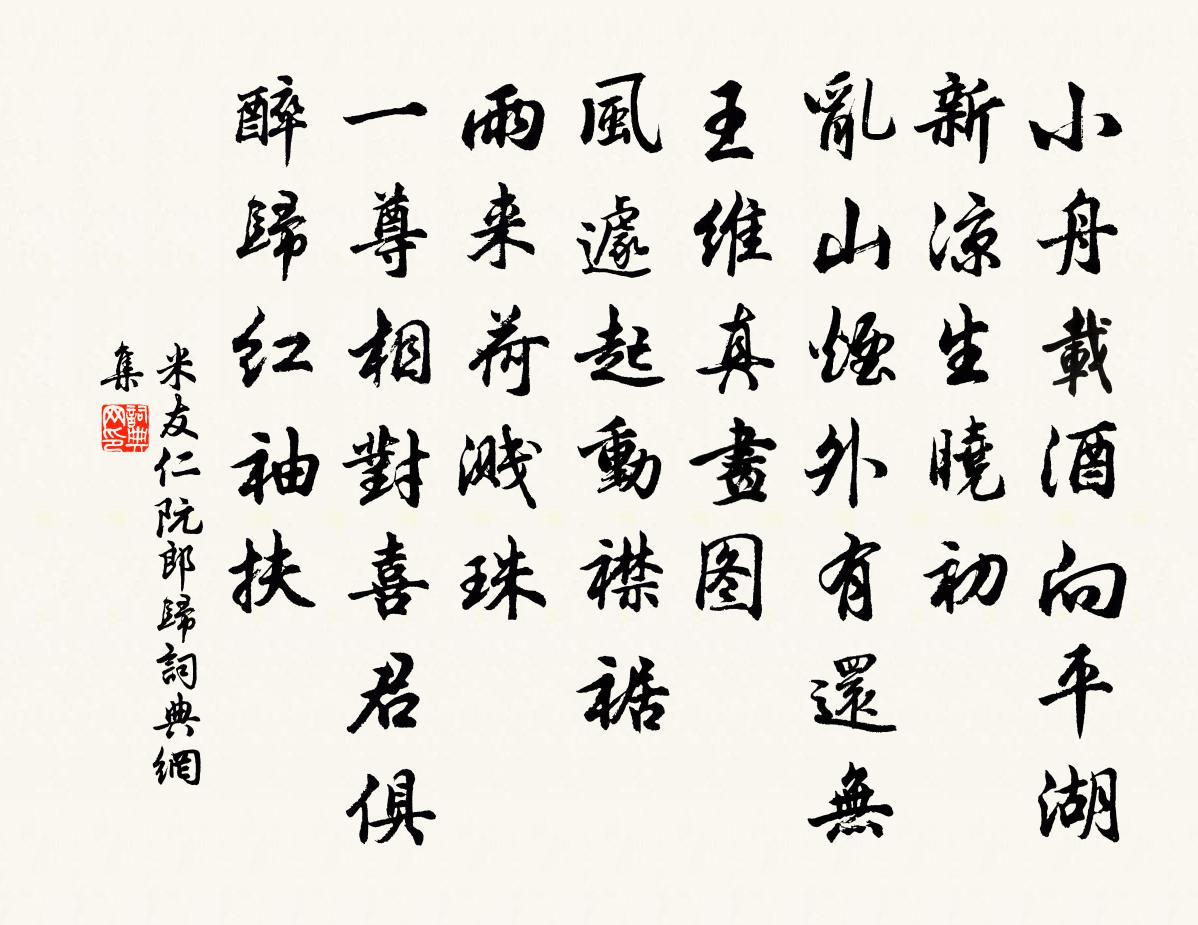 小舟載酒向平湖
新凉生曉初
亂山煙外有還無
王維真畫图
風遽起動襟裾
雨来荷濺珠
一尊相對喜君俱
醉歸红袖扶
米友仁阮郎歸詞典網
集
詞典网印